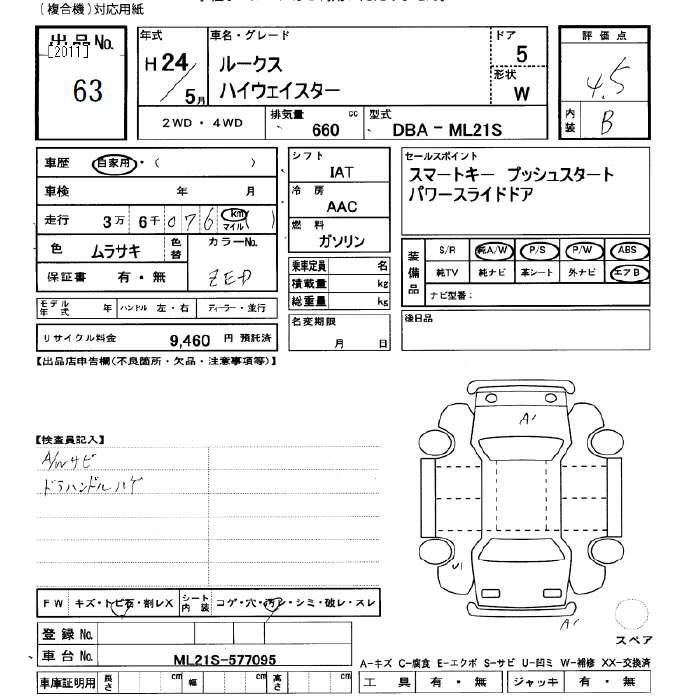 (複合機)対応用紙
出品No. [2011] 63
年式 H24/5月
車名・グレード
ルークス
ハイウェイスター
ドア 5
形状 W
評価点 4.5
内装 B
2WD・4WD
排気量 660 cc
型式 DBA－ML21S
車歴 自家用・( )
車検 年 月
走行 3万 6千 0 7 6 km マイル ( )
色 ムラサキ 色替
カラーNo. ZED
保証書 有・無
モデル年式 年
ハンドル 左・右
ディーラー・並行
リサイクル料金 9,460 円 預託済
シフト IAT
冷房 AAC
燃料 ガソリン
乗車定員 名
積載量 kg
総重量 kg
名変期限 月 日
セールスポイント
スマートキー プッシュスタート
パワースライドドア
装備品
S/R 純A/W P/S P/W ABS
純TV 純ナビ 革シート 外ナビ エアB
ナビ型番:
後日品
【出品店申告欄(不良箇所・欠品・注意事項等)】
【検査員記入】
A/Wサビ
ドラハンドルハゲ
A1
U1
A1
スペア
FW キズ・トビ石・割レX
シート内装 コゲ・穴・汚レ・シミ・破レ・スレ
登録No.
車台No. ML21S-577095
車庫証明用 長さ cm 幅 cm 高さ cm
A-キズ C-腐食 E-エクボ S-サビ U-凹ミ W-補修 XX-交換済
工具 有・無 ジャッキ 有・無